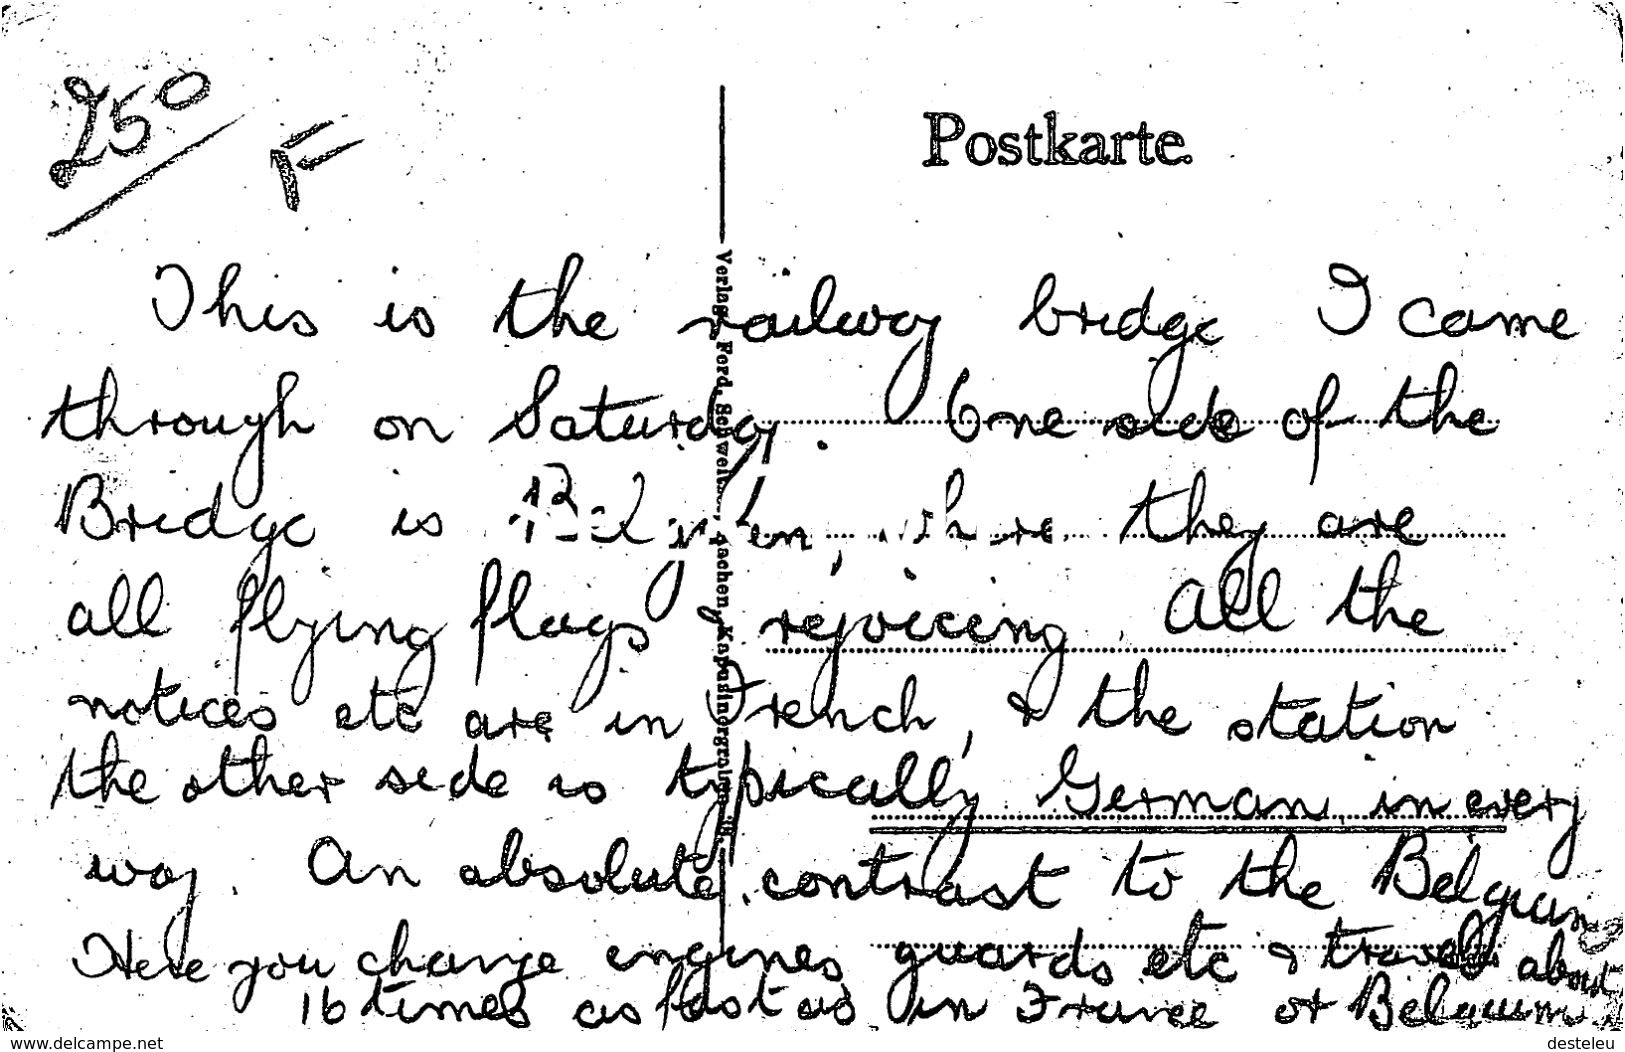 250
Postkarte.
This is the railway bridge I came
through on Saturday. One side of the
Bridge is Belgian, where they are
all flying flags rejoicing. All the
notices etc are in French, & the station
the other side is typically German in every
way. An absolute contrast to the Belgian
Here you change engines guards etc & travel about
16 times as fast as in France or Belgium
Verlag Ferd.
www.delcampe.net
desteleu